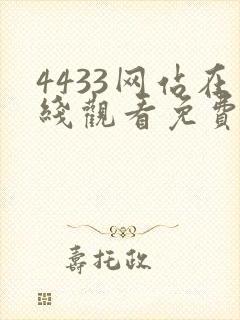 4433网站在
线觀看免費
壽托政